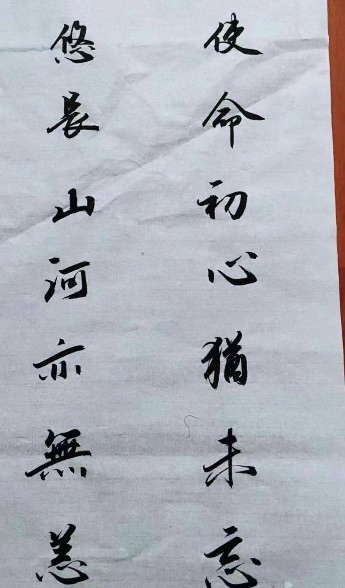 使命初心猶未忘
悠長山河亦無恙